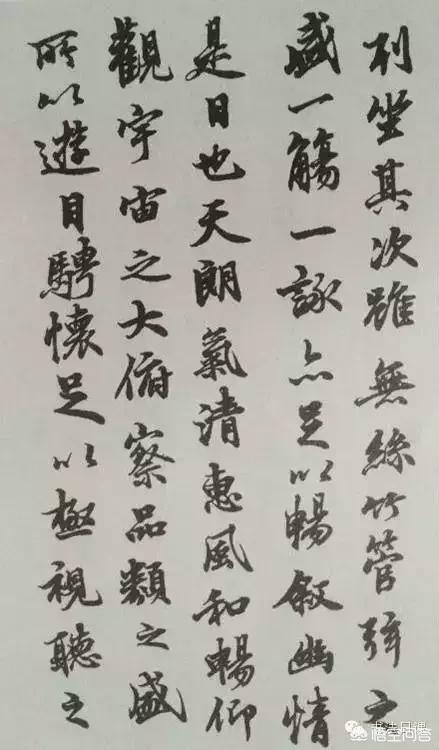 列坐其次雖無絲竹管弦之
盛一觴一詠亦足以暢敘幽情
是日也天朗氣清惠風和暢仰
觀宇宙之大俯察品類之盛
所以遊目騁懷足以極視聽之
悟空问答